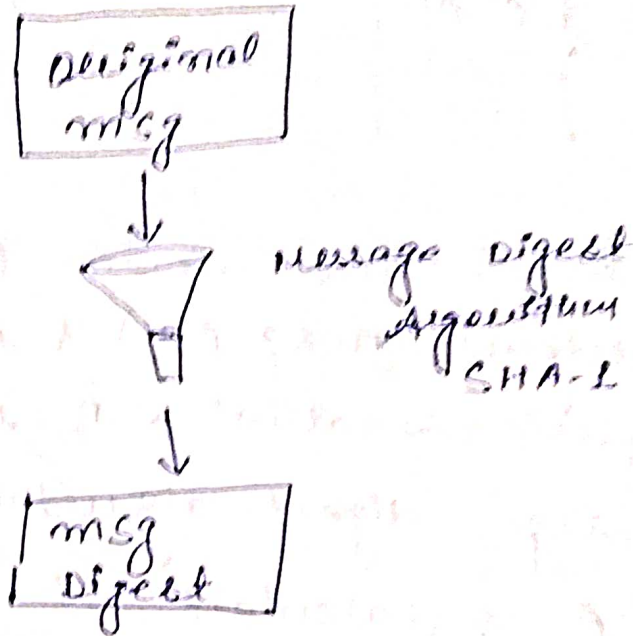 Original
msg
Message Digest
Algorithm
SHA-1
msg
Digest